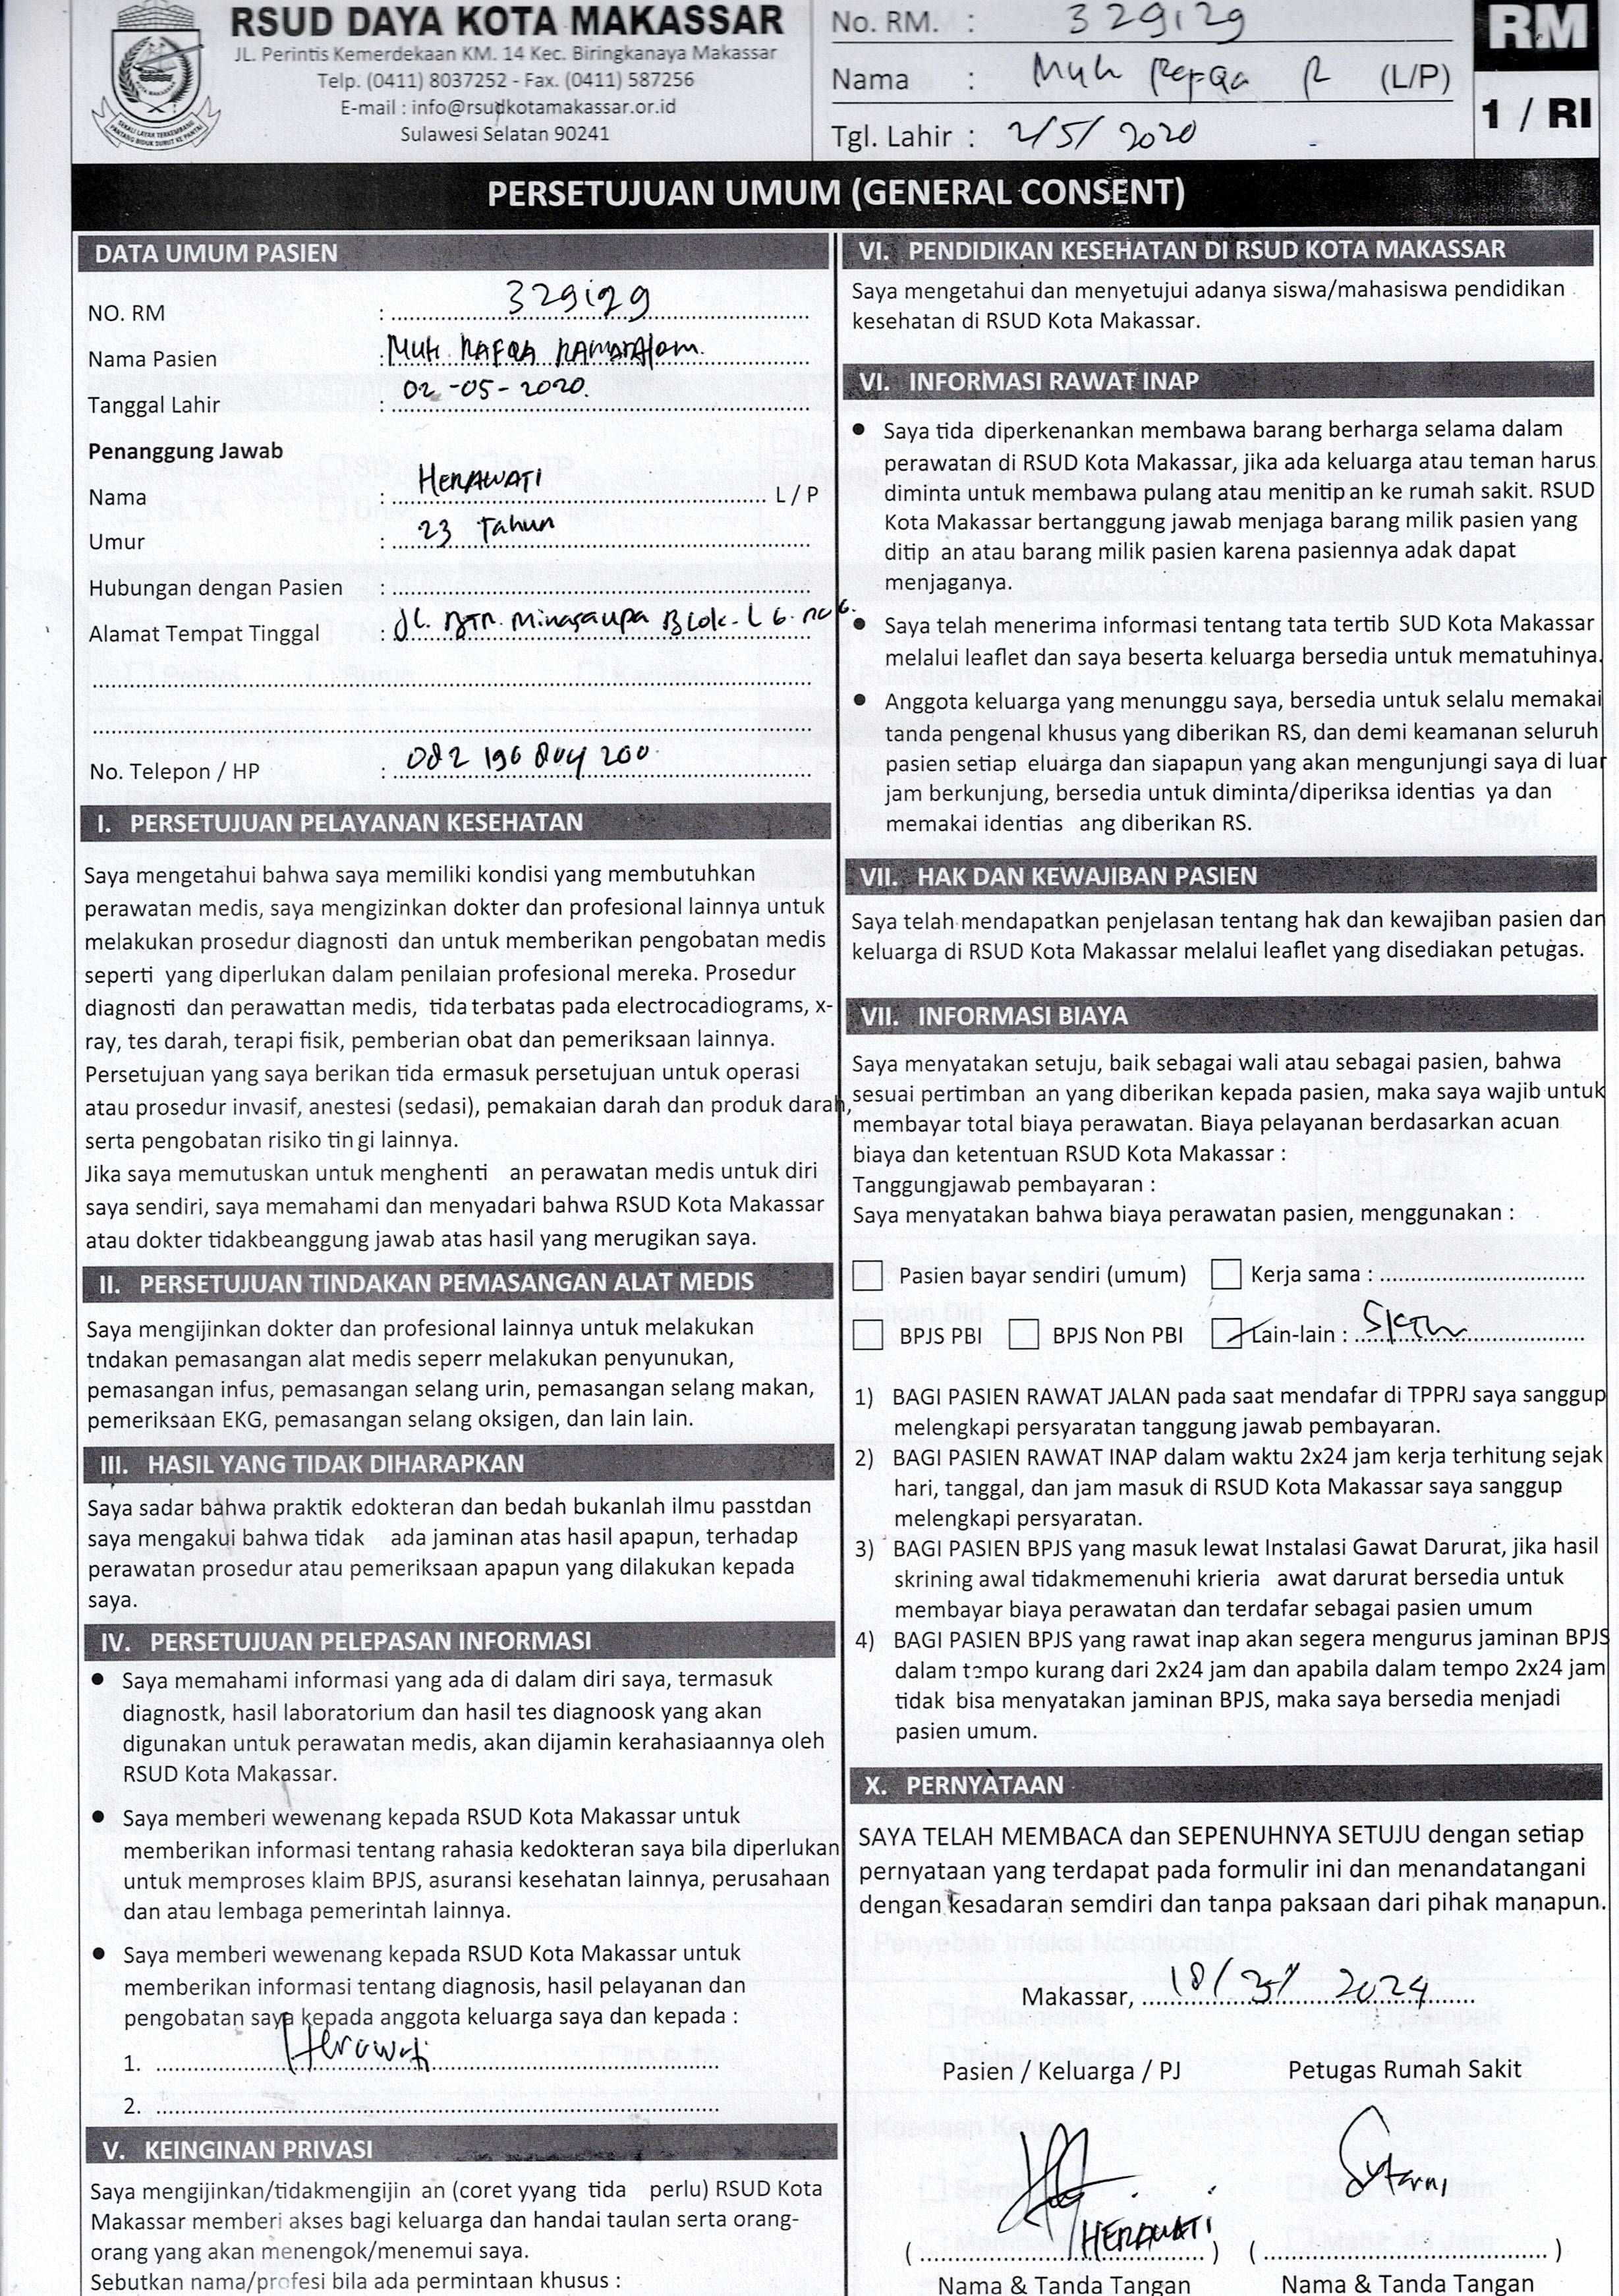 RSUD DAYA KOTA MAKASSAR
JL. Perintis Kemerdekaan KM. 14 Kec. Biringkanaya Makassar
Telp. (0411) 8037252 - Fax. (0411) 587256
E-mail : info@rsudkotamakassar.or.id
Sulawesi Selatan 90241
No. RM. : 329129
Nama : Muh Rafqa R (L/P)
Tgl. Lahir : 2/5/2020
RM
1 / RI
PERSETUJUAN UMUM (GENERAL CONSENT)
DATA UMUM PASIEN
NO. RM : 329129
Nama Pasien : Muh. RAFQA
Tanggal Lahir : 02-05-2020.
Penanggung Jawab
Nama : HERAWATI L / P
Umur : 23 Tahun
Hubungan dengan Pasien :
Alamat Tempat Tinggal : Jl. BTN. Minasaupa Blok. L 6. no 6.
No. Telepon / HP : 082 196 804 200
I. PERSETUJUAN PELAYANAN KESEHATAN
Saya mengetahui bahwa saya memiliki kondisi yang membutuhkan
perawatan medis, saya mengizinkan dokter dan profesional lainnya untuk
melakukan prosedur diagnosti dan untuk memberikan pengobatan medis
seperti yang diperlukan dalam penilaian profesional mereka. Prosedur
diagnosti dan perawattan medis, tida terbatas pada electrocadiograms, x-
ray, tes darah, terapi fisik, pemberian obat dan pemeriksaan lainnya.
Persetujuan yang saya berikan tida ermasuk persetujuan untuk operasi
atau prosedur invasif, anestesi (sedasi), pemakaian darah dan produk darah,
serta pengobatan risiko tin gi lainnya.
Jika saya memutuskan untuk menghenti an perawatan medis untuk diri
saya sendiri, saya memahami dan menyadari bahwa RSUD Kota Makassar
atau dokter tidakbeanggung jawab atas hasil yang merugikan saya.
II. PERSETUJUAN TINDAKAN PEMASANGAN ALAT MEDIS
Saya mengijinkan dokter dan profesional lainnya untuk melakukan
tndakan pemasangan alat medis seperr melakukan penyunukan,
pemasangan infus, pemasangan selang urin, pemasangan selang makan,
pemeriksaan EKG, pemasangan selang oksigen, dan lain lain.
III. HASIL YANG TIDAK DIHARAPKAN
Saya sadar bahwa praktik edokteran dan bedah bukanlah ilmu passtdan
saya mengakui bahwa tidak ada jaminan atas hasil apapun, terhadap
perawatan prosedur atau pemeriksaan apapun yang dilakukan kepada
saya.
IV. PERSETUJUAN PELEPASAN INFORMASI
● Saya memahami informasi yang ada di dalam diri saya, termasuk
diagnostk, hasil laboratorium dan hasil tes diagnoosk yang akan
digunakan untuk perawatan medis, akan dijamin kerahasiaannya oleh
RSUD Kota Makassar.
● Saya memberi wewenang kepada RSUD Kota Makassar untuk
memberikan informasi tentang rahasia kedokteran saya bila diperlukan
untuk memproses klaim BPJS, asuransi kesehatan lainnya, perusahaan
dan atau lembaga pemerintah lainnya.
● Saya memberi wewenang kepada RSUD Kota Makassar untuk
memberikan informasi tentang diagnosis, hasil pelayanan dan
pengobatan saya kepada anggota keluarga saya dan kepada :
1. Herawati
2.
V. KEINGINAN PRIVASI
Saya mengijinkan/tidakmengijin an (coret yyang tida perlu) RSUD Kota
Makassar memberi akses bagi keluarga dan handai taulan serta orang-
orang yang akan menengok/menemui saya.
Sebutkan nama/profesi bila ada permintaan khusus :
VI. PENDIDIKAN KESEHATAN DI RSUD KOTA MAKASSAR
Saya mengetahui dan menyetujui adanya siswa/mahasiswa pendidikan
kesehatan di RSUD Kota Makassar.
VI. INFORMASI RAWAT INAP
● Saya tida diperkenankan membawa barang berharga selama dalam
perawatan di RSUD Kota Makassar, jika ada keluarga atau teman harus
diminta untuk membawa pulang atau menitip an ke rumah sakit. RSUD
Kota Makassar bertanggung jawab menjaga barang milik pasien yang
ditip an atau barang milik pasien karena pasiennya adak dapat
menjaganya.
● Saya telah menerima informasi tentang tata tertib SUD Kota Makassar
melalui leaflet dan saya beserta keluarga bersedia untuk mematuhinya.
● Anggota keluarga yang menunggu saya, bersedia untuk selalu memakai
tanda pengenal khusus yang diberikan RS, dan demi keamanan seluruh
pasien setiap eluarga dan siapapun yang akan mengunjungi saya di luar
jam berkunjung, bersedia untuk diminta/diperiksa identias ya dan
memakai identias ang diberikan RS.
VII. HAK DAN KEWAJIBAN PASIEN
Saya telah mendapatkan penjelasan tentang hak dan kewajiban pasien dan
keluarga di RSUD Kota Makassar melalui leaflet yang disediakan petugas.
VII. INFORMASI BIAYA
Saya menyatakan setuju, baik sebagai wali atau sebagai pasien, bahwa
sesuai pertimban an yang diberikan kepada pasien, maka saya wajib untuk
membayar total biaya perawatan. Biaya pelayanan berdasarkan acuan
biaya dan ketentuan RSUD Kota Makassar :
Tanggungjawab pembayaran :
Saya menyatakan bahwa biaya perawatan pasien, menggunakan :
Pasien bayar sendiri (umum) Kerja sama :
BPJS PBI BPJS Non PBI Lain-lain : SKTM
1) BAGI PASIEN RAWAT JALAN pada saat mendafar di TPPRJ saya sanggup
melengkapi persyaratan tanggung jawab pembayaran.
2) BAGI PASIEN RAWAT INAP dalam waktu 2x24 jam kerja terhitung sejak
hari, tanggal, dan jam masuk di RSUD Kota Makassar saya sanggup
melengkapi persyaratan.
3) BAGI PASIEN BPJS yang masuk lewat Instalasi Gawat Darurat, jika hasil
skrining awal tidakmemenuhi krieria awat darurat bersedia untuk
membayar biaya perawatan dan terdafar sebagai pasien umum
4) BAGI PASIEN BPJS yang rawat inap akan segera mengurus jaminan BPJS
dalam tempo kurang dari 2x24 jam dan apabila dalam tempo 2x24 jam
tidak bisa menyatakan jaminan BPJS, maka saya bersedia menjadi
pasien umum.
X. PERNYATAAN
SAYA TELAH MEMBACA dan SEPENUHNYA SETUJU dengan setiap
pernyataan yang terdapat pada formulir ini dan menandatangani
dengan kesadaran semdiri dan tanpa paksaan dari pihak manapun.
Makassar, 2024
Pasien / Keluarga / PJ Petugas Rumah Sakit
HERAWATI
Nama & Tanda Tangan Nama & Tanda Tangan